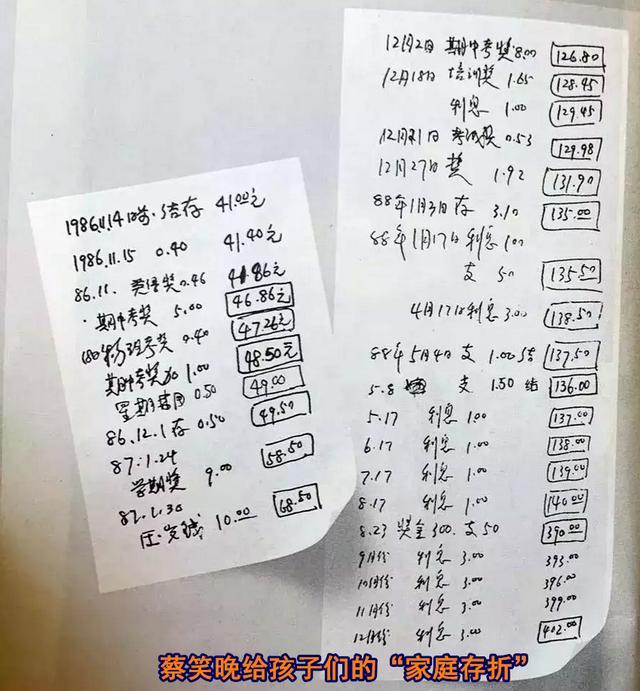 1986.11.14日前·结存 41.00元
1986.11.15 0.40 41.40元
86.11. 英语奖0.46 41.86元
·期中考奖 5.00 46.86元
物理考奖 0.40 47.26元
期中考奖加 1.00 48.50元
星期 0.50 49.00
86.12.1存 0.50 49.50
87.1.24
学期奖 9.00 58.50
87.1.30
压岁钱 10.00 68.50
12月2日 期中考奖 8.00 126.80
12月18日 培训奖 1.65 128.45
利息 1.00 129.45
12月21日 考试奖 0.53 129.98
12月27日 奖 1.92 131.90
88年1月3日存 3.10 135.00
88年1月17日利息 1.00
支 50 135.50
4月17日利息 3.00 138.50
88年5月4日 支 1.00 结 137.50
5.8 支 1.50 结 136.00
5.17 利息 1.00 137.00
6.17 利息 1.00 138.00
7.17 利息 1.00 139.00
8.17 利息 1.00 140.00
8.23 奖金300.支50 390.00
9月份 利息 3.00 393.00
10月份 利息 3.00 396.00
11月份 利息 3.00 399.00
12月份 利息 3.00 402.00
蔡笑晚给孩子们的“家庭存折”